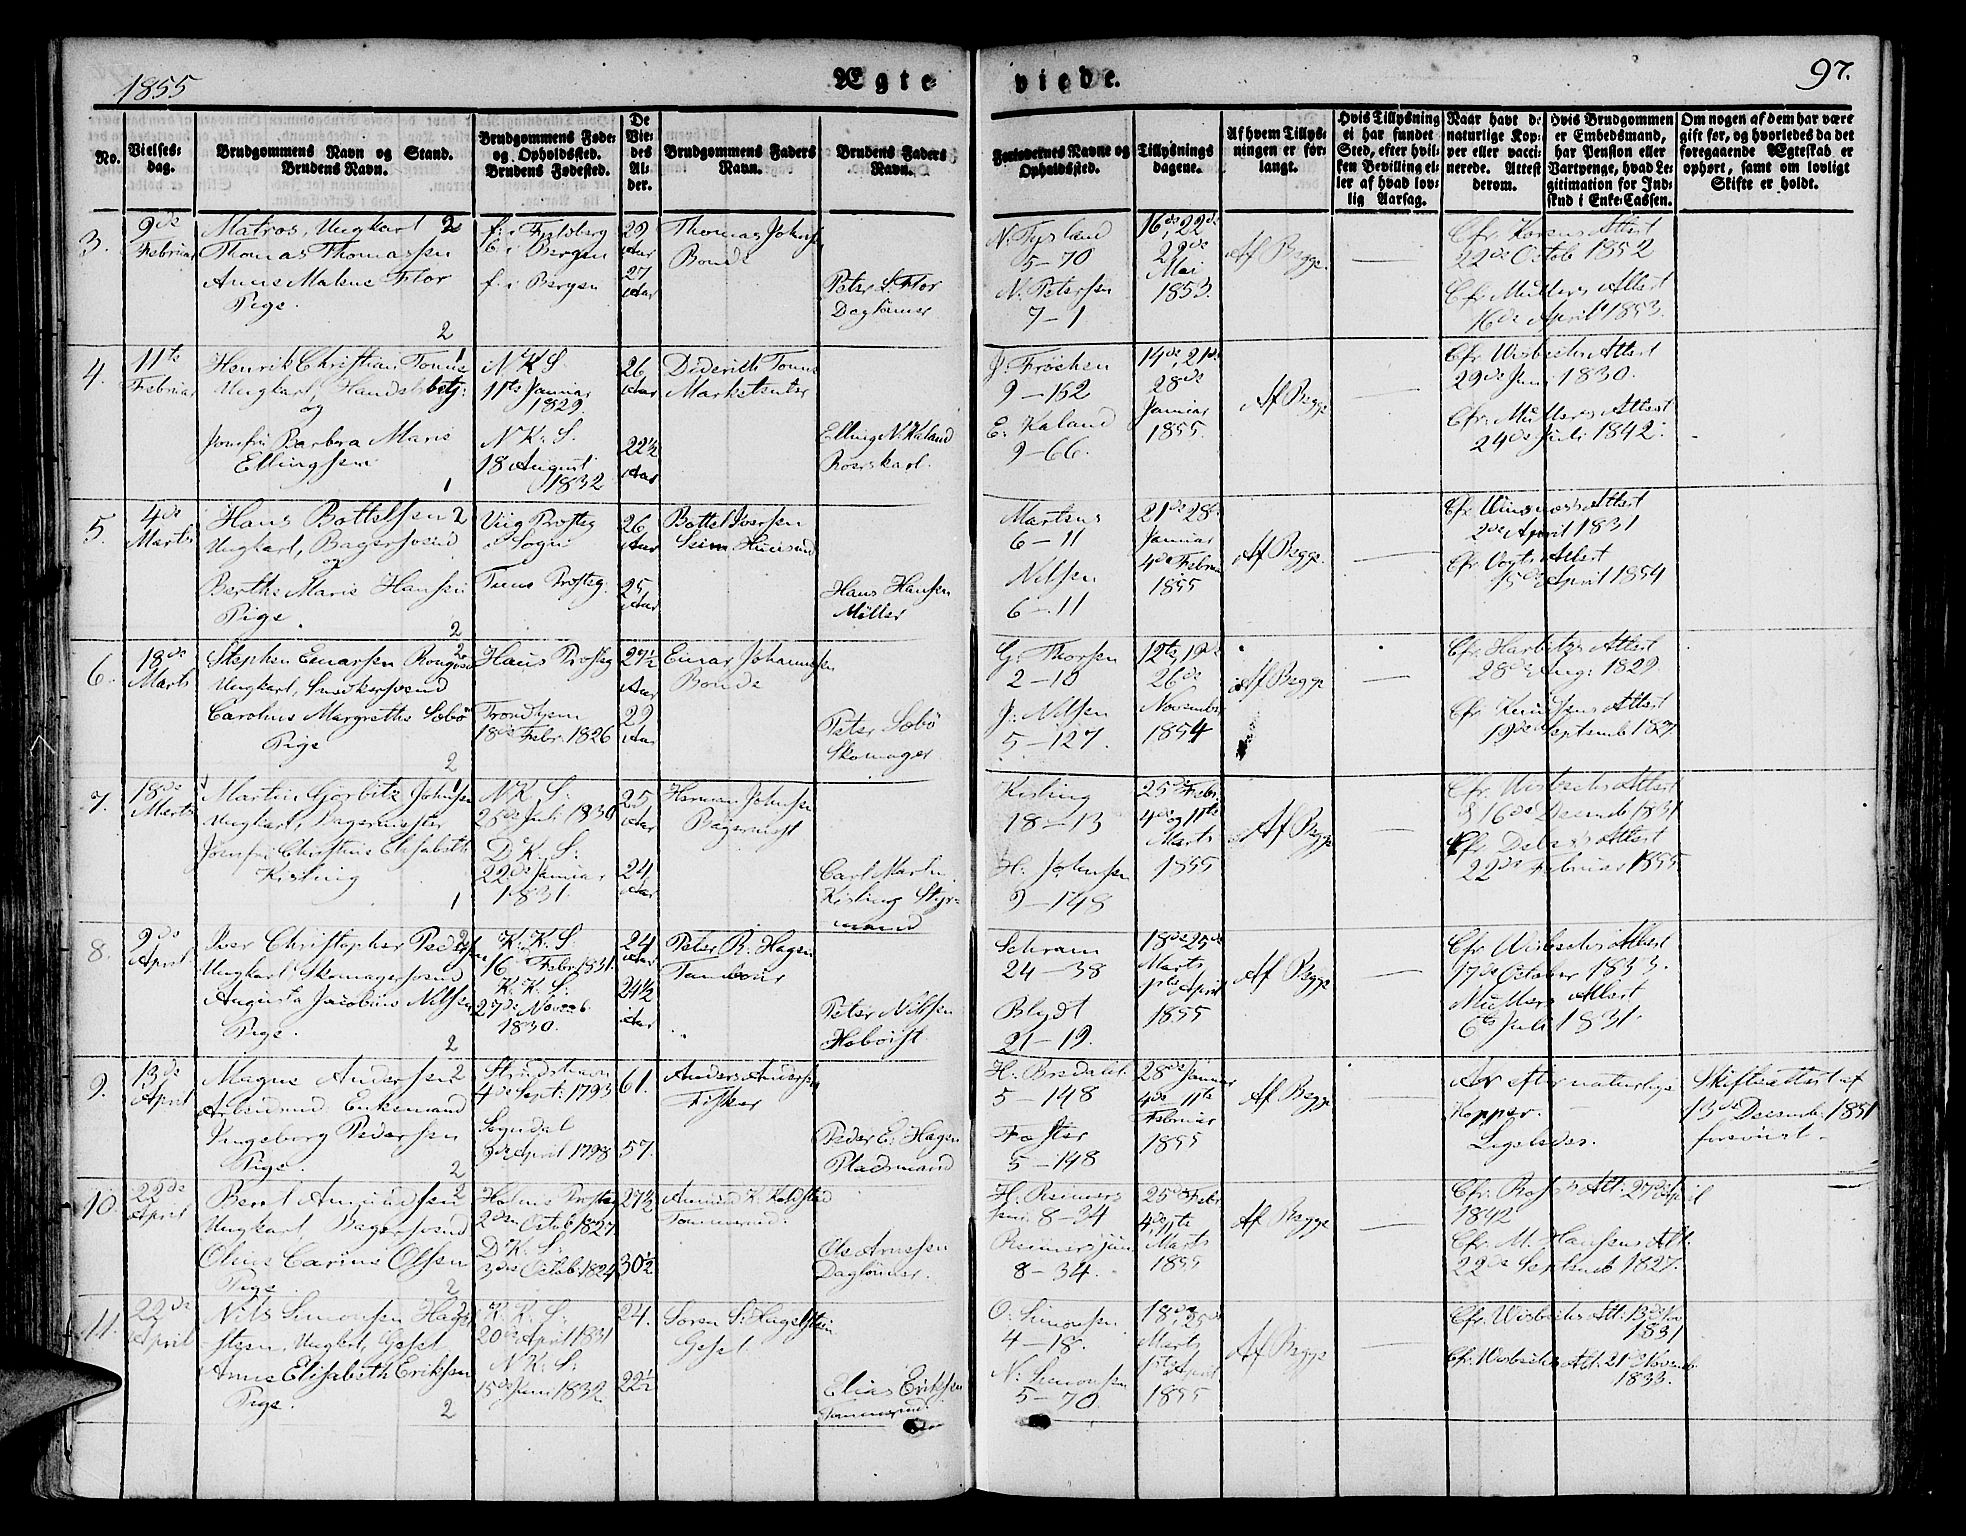 1855
Ægte
viede.
97.
No.
Vielses-
dag.
Brudgommens Navn og Stand.
Brudens Navn.
Brudgommens Føde-
og Opholdssted.
Brudens Fødested.
De
Vie-
des
Al-
der.
Brudgommens Faders
Navn.
Brudens Faders
Navn.
Forlovernes Navne og
Opholdssted.
Tillysnings
dagene.
Af hvem Tillys-
ningen er for-
langt.
Hvis Tillysning
ei har fundet
Sted, efter hvil-
ken Bevilling el-
ler af hvad lov-
lig Aarsag.
Naar havt de
naturlige Kop-
per eller vacci-
nerede. Attest
derom.
Hvis Brudgommen
er Embedsmand,
har Pension eller
Vartpenge, hvad Le-
gitimation for Ind-
skud i Enke-Cassen.
Om nogen af dem har være
gift før, og hvorledes da det
foregaaende Ægteskab er
ophørt, samt om lovligt
Skifte er holdt.
3.
9de
Februar
Matros, Ungkarl 2
Thomas Thomassen
Anne Malene Flor
Pige.
2
b. i Bergen
f. i Bergen
29
Aar
27
Aar
Thomas Johns
Bonde
Peter S. Flor
Daglønner
N. Tysland
5-70
N. Petersen
7-1
16de, 22de
29de
Mai
1853.
Af Begge.
22de Octob 1852
Cfr. Müllers Attest
16de April 1853.
4.
11te
Februar
Henrik Christian Tonnes 1
Ungkarl, Handelsbetj:
og
Jomfru Barbera Marie
Ellingsen
1
N K. S.
11te Januar
1829.
N. K. S.
18 August
1832
26
Aar
22½
Aar
Diderich Tonnes
Marketenter
Elling N. Kaland
Roerskarl.
J. Frøchen
9-162
E. Kaland
9-66.
14de, 21de
28de
Januar
1855.
Af Begge
Cfr. Wisbechs Attest
29de Juni 1830.
Cfr. Müllers Attest
24de Juli 1842.
5.
4de
Marts
Hans Bottelsen 2
Ungkarl, Bagersvend
og
Berthe Marie Hansen
Pige.
2
Viig Prsteg
i Sogn
Tuns Prsteg.
26
Aar
25
Aar
Bottel Iversen
Seim Huusmd
Hans Hansen
Møller
Martens
6-11
Nilsen
6-11
21de 28de
Januar
4de Februar
1855
Af Begge
2de April 1831
Cfr. Vogts Attest
15de April 1854
6.
18de
Marts
Stephen Einarsen 2
Ungkarl, Snedkersvend
Caroline Margrethe Sebø
Pige
2
Haus Prsteg
Trondhjem
18de Febr. 1826
27½
Aar
29
Aar
Einar Johannesen
Bonde
Peter Sebø
Skomager
G. Thorsen
2-10
J. Nilsen
5-127.
12te, 19de
26de
November
1854
Af Begge
Cfr. Harbitz Attest
28de Aug: 1829
Cfr. Knudsens Attest
19de Septemb 1827.
7.
18de
Marts
Martin Gørbitz Johnsen 1
Ungkarl, Bagermester
Jomfru Christine Elisabeth
Kisling
1
N. K. S.
25de Juli 1830
D. K. S.
22de Januar
1831.
25
Aar
24
Aar
Herman Johnsen
Bagermest
Carl Martin
Kisling Styr-
mand
Kisling
18-13
H. Johnsen
9-148
25de Febr.
4de og 11te
Marts
1855
Af Begge
Cfr. Wisbechs Attest
16de Decemb 1831
22de Februar 1855
8.
9de
April
Iver Christopher Pedersen 2
Ungkarl Skomagersvend
Augusta Jacobine Nilsen
Pige.
2
K. K. S.
16 Febr 1831.
K. K. S.
27de Novemb.
1830.
24
Aar
24½
Aar
Peter R. Hagen
Tambour
Peter Nilsen
Hoboist
Schram
24-38
Blydt
21-19.
18de 25de
Marts
1ste April
1855
Af Begge
Cfr. Wisbechs Attest
17de October 1833.
Müllers Attest
6te Juli 1831.
9.
13de
April
Magne Andersen 2
Arbeidsmd. Enkemand
Ingeborg Pedersen
Pige.
2
Strudshavn
4de Sept: 1793
Sogndal
3de April 1798
61.
57.
Anders Andersen
Fisker
Peder E. Hagen
Pladsmand
H. Bredalit.
5-148
Faster
5-148
28de Januar
4de 11te
Februar
1855
Af Begge
Ar efter naturlige
Kopper.
Ligeledes.
Skifteattest af
13de Decemb. 1851
foreviist.
10.
22de
April
Bernt Amundsen 2
Ungkarl, Bagersvend
Oline Carine Olsen
Pige.
2
Holms Prsteg
2den Octob. 1827.
D. K. S.
3die Octob. 1824
27½
30½
Amund K. Holdstad
Tommermd.
Ole Arnesen
Daglønner.
H. Reimers
sen: 8-34
Reimers jun
8-34.
25de Febr
4de, 11te
Marts
1855
Af Begge
27de April
1842
Cfr. M. Hansens Att.
22de Septemb 1827.
11.
22de
April
Nils Simonsen Hagel 2
steen, Ungkarl, Gesel
Anne Elisabeth Eriksen
Pige.
2
K. K. S.
20de April 1831
N. K. S.
15de Juni 1832
24.
22½
Søren S. Hagelsteen
Gesel
Elias Eriksen
Tommermd.
O. Simonsen
4-18.
N. Simonsen
5-70.
18de, 25de
Marts
1ste April
1855
Af Begge
Cfr. Wisbechs Att. 13de Nov
1831
Cfr. Wisbechs Att. 21de Novemb
1833.